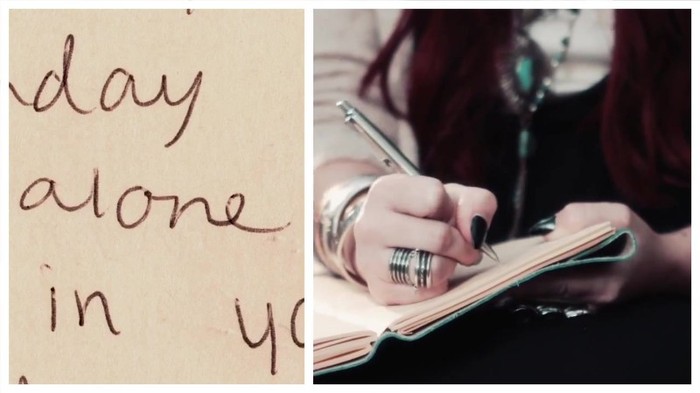 day
alone
in yo